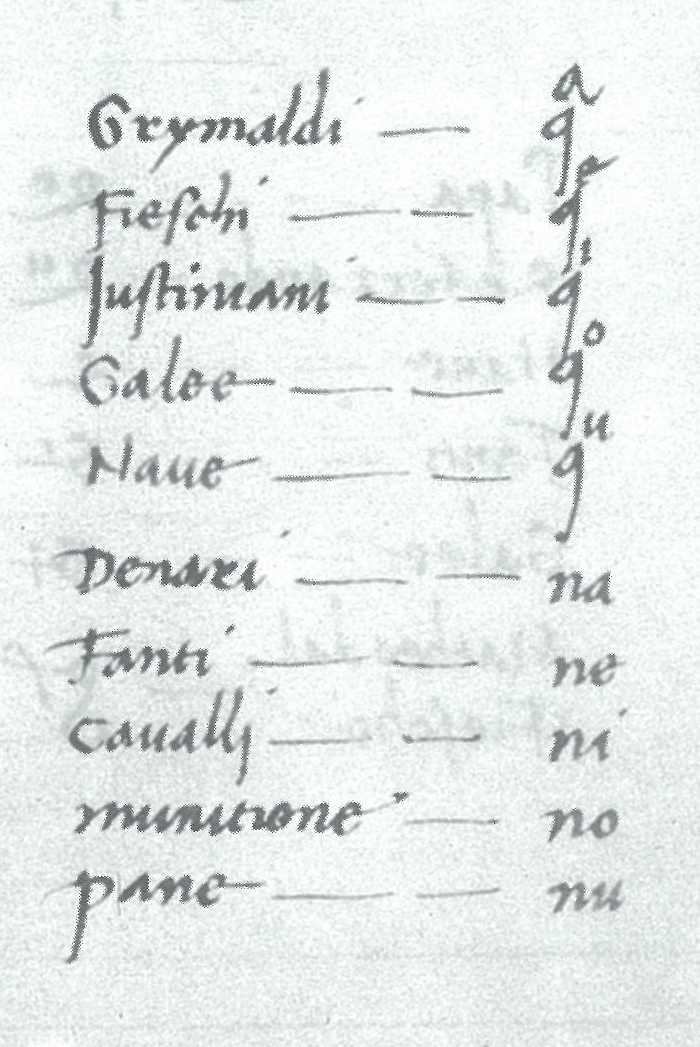 Grymaldi — qᵃ
Fieschi — — qᵉ
Justiniani — — qⁱ
Galee — — qᵒ
Naue — — qᵘ
Denari — — na
Fanti — — ne
Cavallj — — ni
munitione — no
pane — — nu